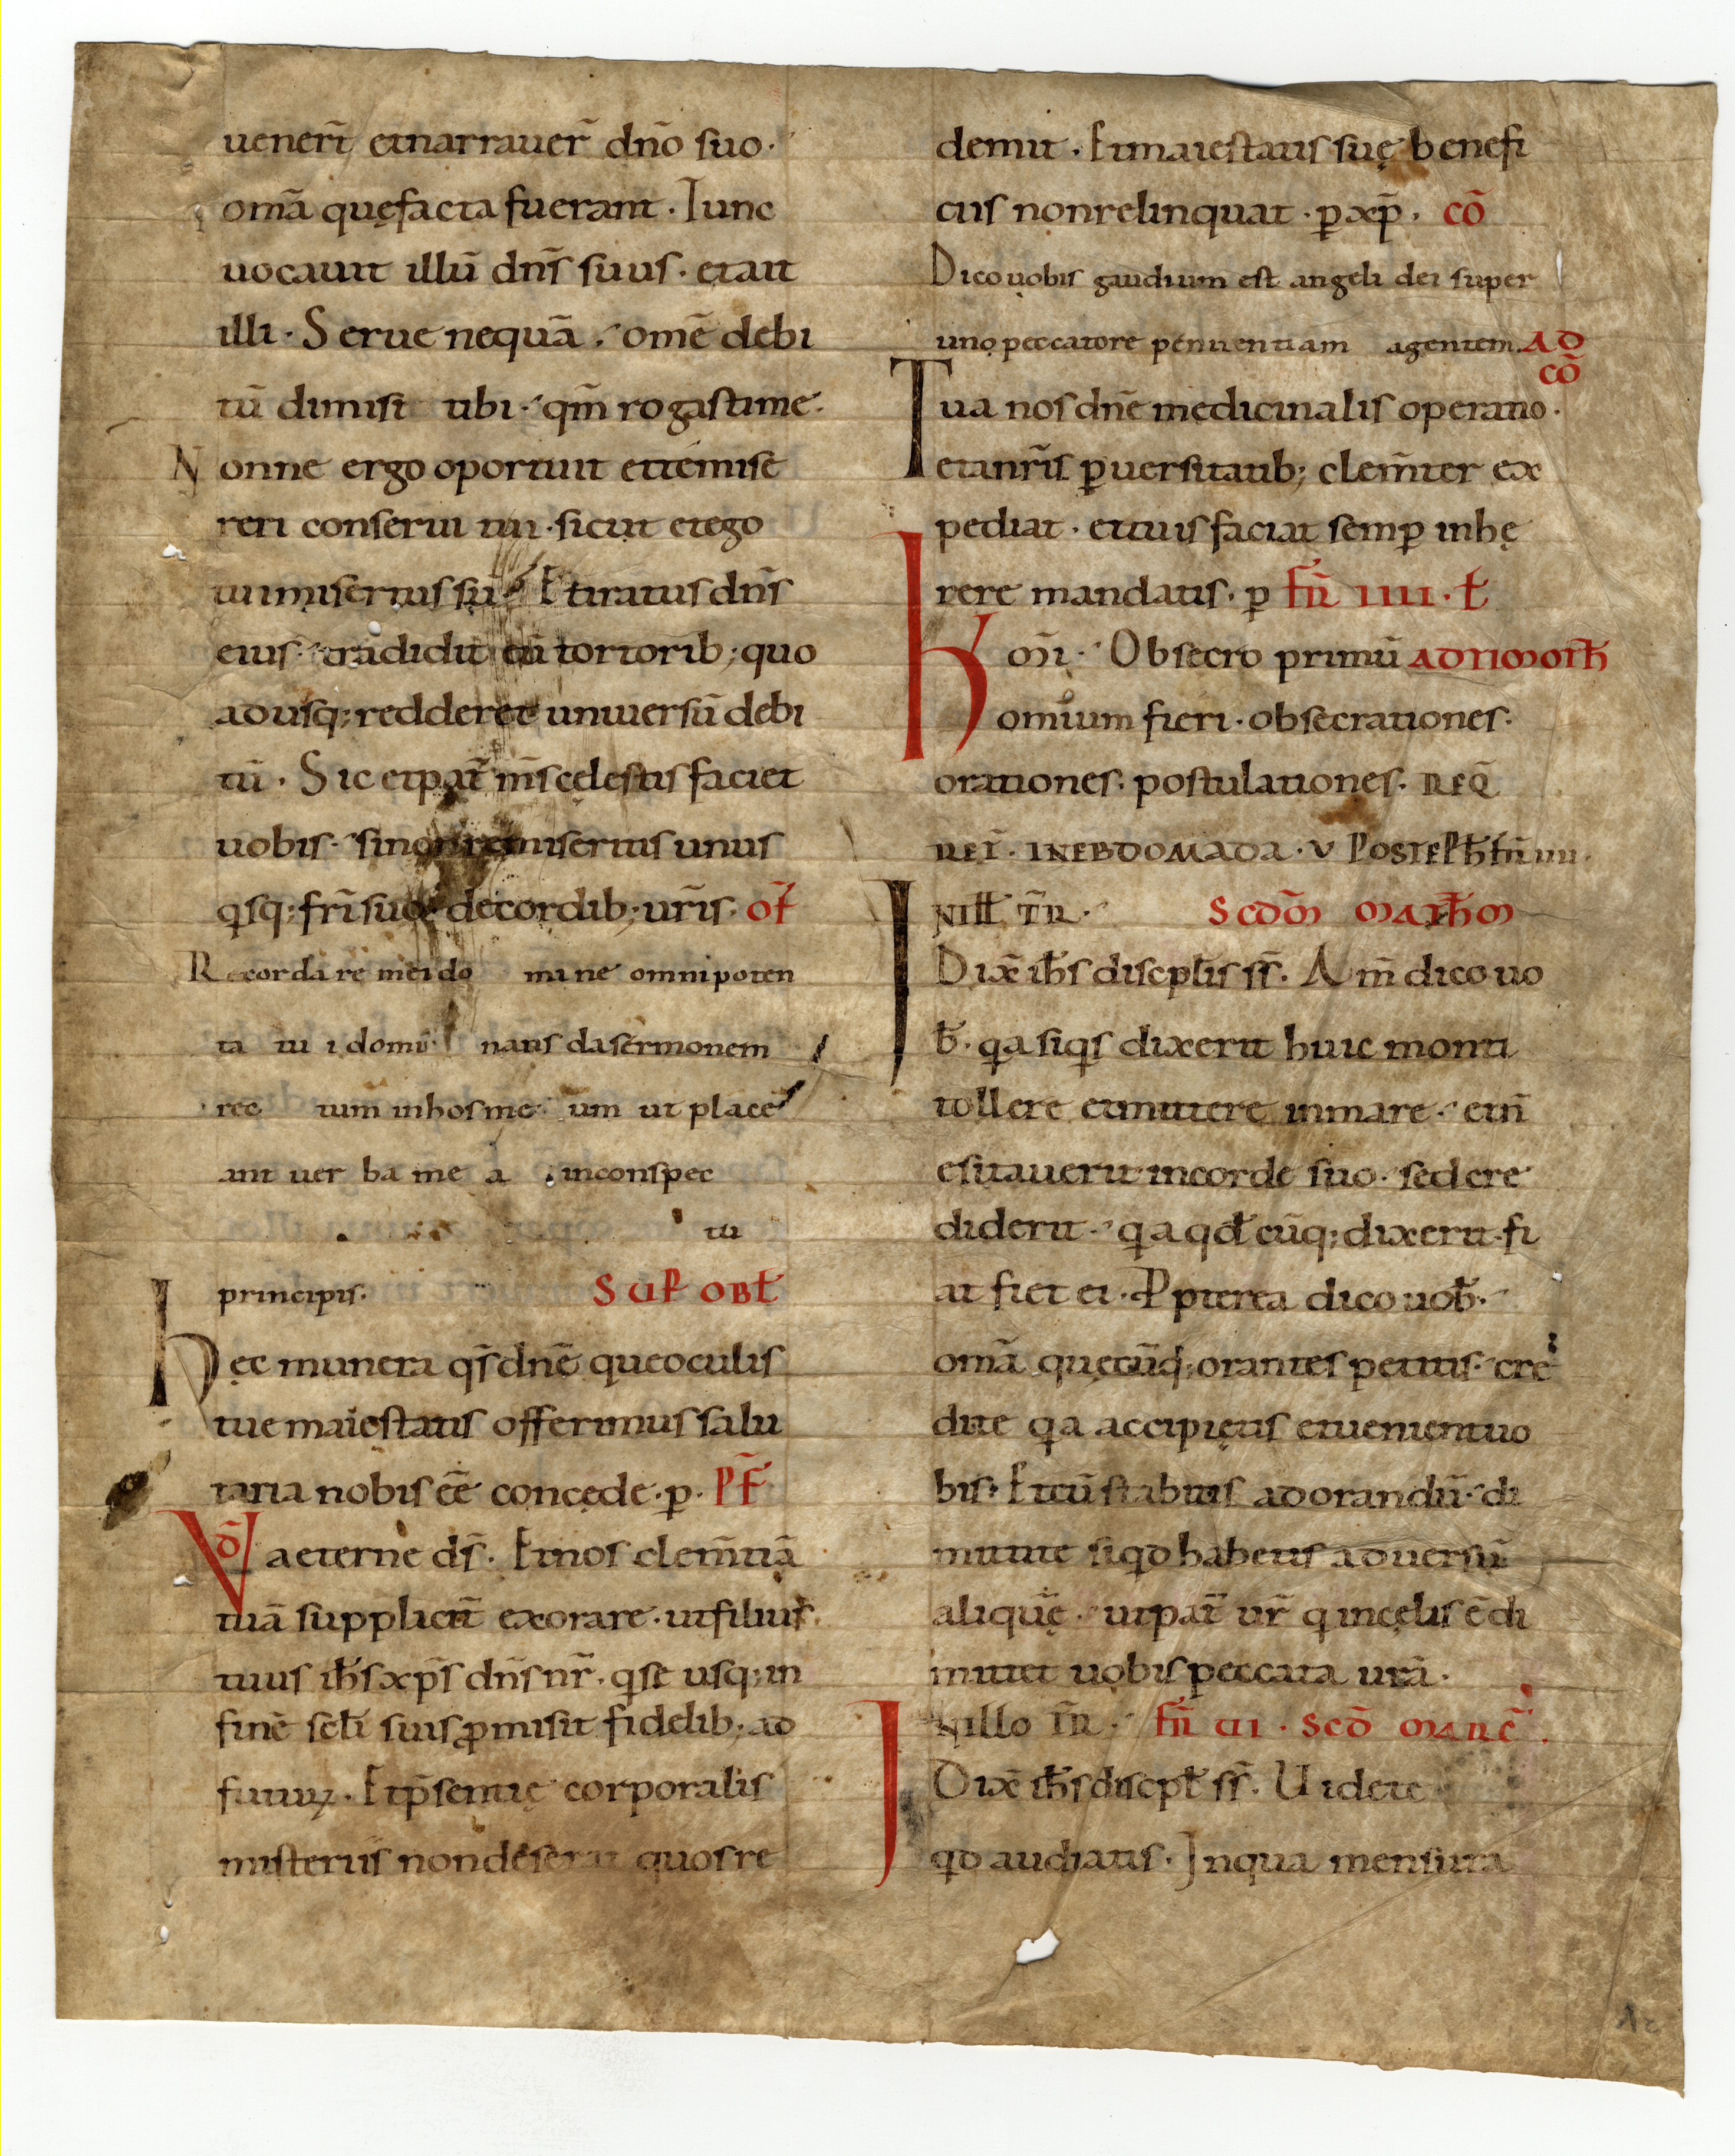 uener̃t etnarrauer̃ dño suo.
omã quęfacta fuerant. Tunc
uocauit illũ dñs suus. etait
illi. Serue nequã. omẽ debi
tũ dimisi tibi. qm̃ rogastime.
Nonne ergo oportuit ettemise
reri conserui tui. sicut etego
tuimisertus sũ. Etiratus dñs
eius. tradidit eũ tortorib; quo
adusq; redderet uniuersũ debi
tũ. Sic etpat̃ m̃s cęlestis faciet
uobis. sinonremiseritis unus
qsq; frĩ suo decordib; ur̃is. of̃
Recordare mei do mine omnipoten
ta tu i domi natis dasermonem
rec tum inhosme um ut place
ant uer ba me a inconspec
tu
principis. SUP OBL̃
Hęc munera qs̃ dnẽ queoculis
tue maiestatis offerimus salu
taria nobis ẽe concęde. p. PF̃
VD̃ aeterne ds̃. Etnos clem̃tiã
tuã supplicit̃ exorare. utfilius
tuus ihs̃ xps̃ dñs nr̃. qse usq; in
finẽ scli suis promisit fidelib; ad
futurꝝ. Etp̃sentię corporalis
misteriis nondeserit quosre
demit. Etmaiestatis suę benefi
ciis nonrelinquat. p xp̃. cõ
Dicouobis gaudium est angeli dei super
uno peccatore penitentiam agentem. AD
cõ
Tua nos dnẽ medicinalis operatio.
etanr̃is puersitatib; clem̃ter ex
pediat. ettuis faciat semp inhę
rere mandatis. p fr̃ IIII. t̃
Rom̃. Obsecro primũ AD TIMOTH̃
omium fieri. obsecrationes.
orationes. postulationes. REQ̃
REĨ. INEBDOMADA. V POSTEPH̃ fr̃ IIII.
INILL̃ T̃R. SCDM̃ MATH̃M
Dix̃ ihs̃ discplis sf̃. Am̃ dico uo
b̃. qa siqs dixerit huic monti
tollere etmittere inmare. etñ
esitauerit incorde suo. sed cre
diderit. qa qd̃ cũq; dixerit fi
at fiet ei. Ppterea dico uob̃.
omã quęcũq; orantes petitis. cre
dite qa accipietis etuenientuo
bis. Etcũ stabitis adorandũ. di
mittite siqd habetis aduersũ
aliquẽ. utpat̃ ur̃ q incęlis ẽ di
mittet uobis peccata urã.
INillo T̃R. fr̃ VI. SCD̃ MARC̃.
Dix̃ ihs̃ discpl̃ sf̃. Uidete
qd audiatis. Inqua mensura